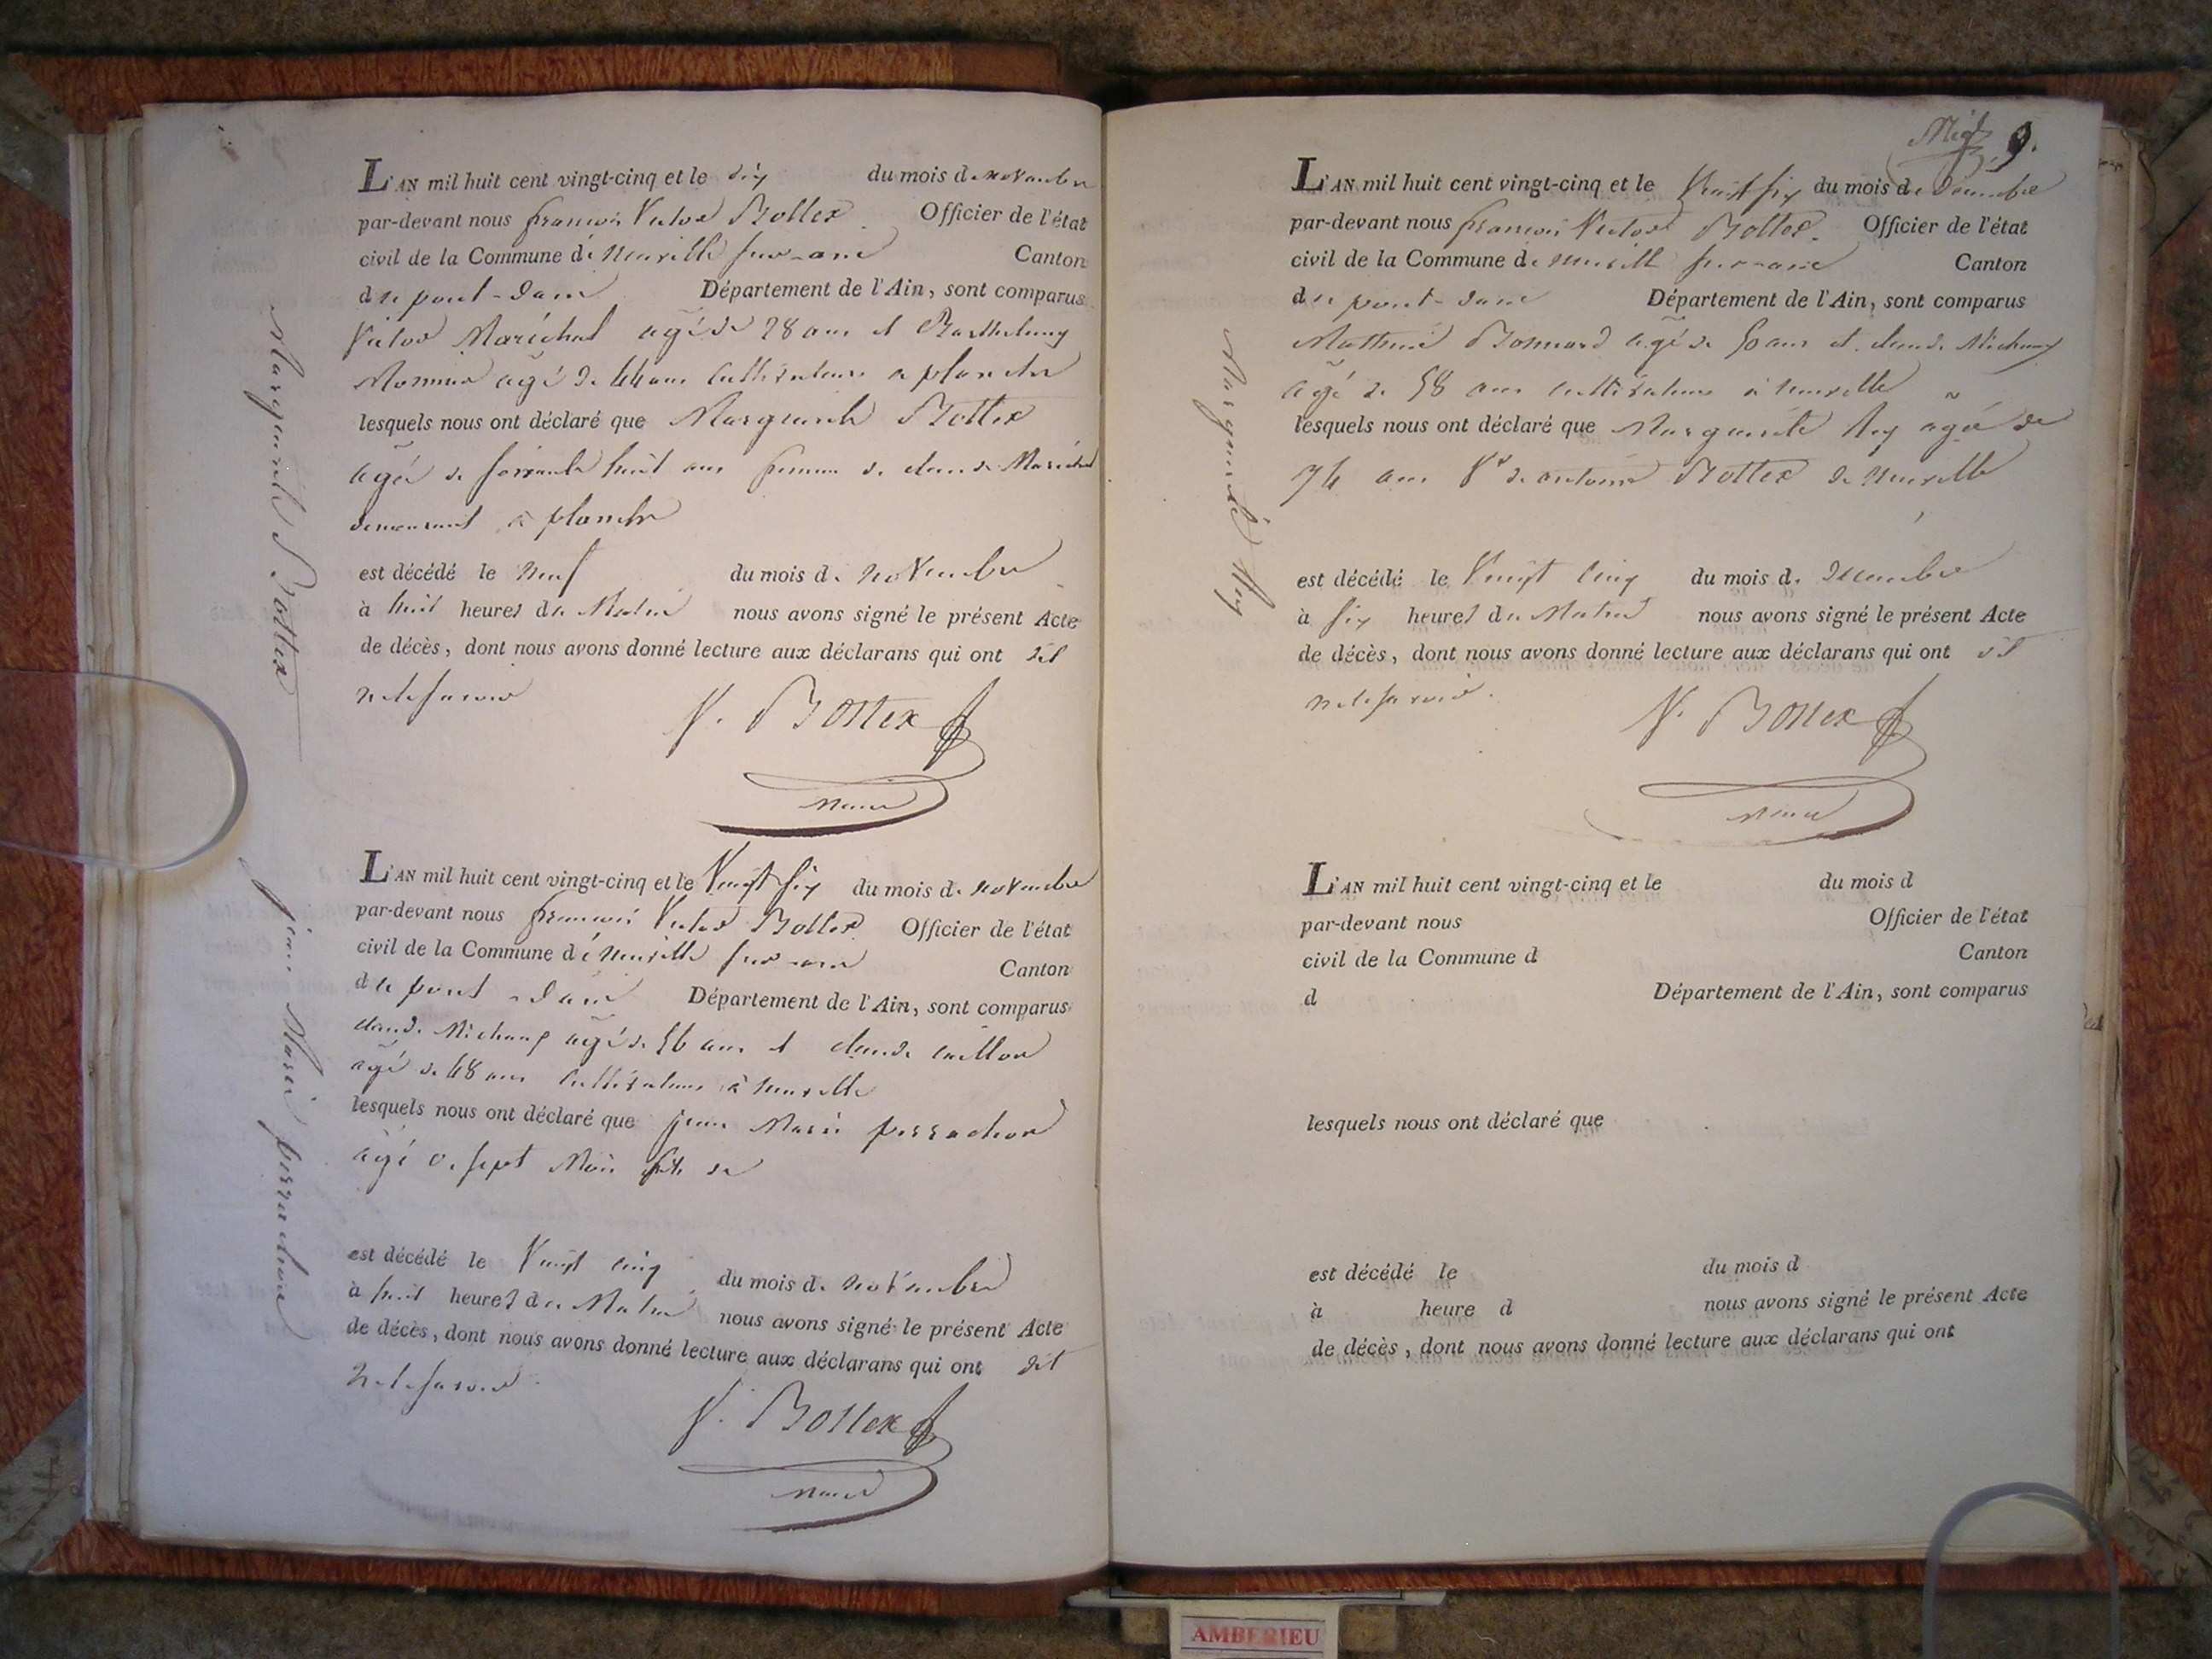 Marguerite Bottex
L'AN mil huit cent vingt-cinq et le dix du mois de novembre
par-devant nous françois Victor Bottex Officier de l'état
civil de la Commune de Neuville sur-ain Canton
du pont-dain Département de l'Ain, sont comparus
Victor Maréchal agé de 28 ans et Barthelemy
Monnier agé de 44 ans cultivateurs a planche
lesquels nous ont déclaré que Marguerite Bottex
agée de soixante huit ans femme de claude Maréchal
demeurant à planche
est décédé le neuf du mois de novembre
à huit heures du Matin nous avons signé le présent Acte
de décès, dont nous avons donné lecture aux déclarans qui ont dit
ne le savoir
V. Bottex
maire
jean Marie perrachon
L'AN mil huit cent vingt-cinq et le Vingt six du mois de novembre
par-devant nous françois Victor Bottex Officier de l'état
civil de la Commune de Neuville sur-ain Canton
du pont-dain Département de l'Ain, sont comparus
claude Michaup agé de 56 ans et claude
agé de 48 ans cultivateurs à neuville
lesquels nous ont déclaré que jean Marie perrachon
agé de sept Mois fils de
est décédé le Vingt cinq du mois de novembre
à huit heures du Matin nous avons signé le présent Acte
de décès, dont nous avons donné lecture aux déclarans qui ont dit
ne le savoir
V. Bottex
maire
9.
Marguerite
L'AN mil huit cent vingt-cinq et le Vingt six du mois de decembre
par-devant nous françois Victor Bottex Officier de l'état
civil de la Commune de neuville sur-ain Canton
du pont-dain Département de l'Ain, sont comparus
Mathieu Bonnard agé de 50 ans et claude Michaup
agé de 58 ans cultivateurs à neuville
lesquels nous ont déclaré que Marguerite agée de
74 ans Ve de antoine Bottex de neuville
est décédé le Vingt cinq du mois de decembre
à six heures du Matin nous avons signé le présent Acte
de décès, dont nous avons donné lecture aux déclarans qui ont dit
ne le savoir.
V. Bottex
maire
L'AN mil huit cent vingt-cinq et le du mois d
par-devant nous Officier de l'état
civil de la Commune d Canton
d Département de l'Ain, sont comparus
lesquels nous ont déclaré que
est décédé le du mois d
à heure d nous avons signé le présent Acte
de décès, dont nous avons donné lecture aux déclarans qui ont
AMBERIEU